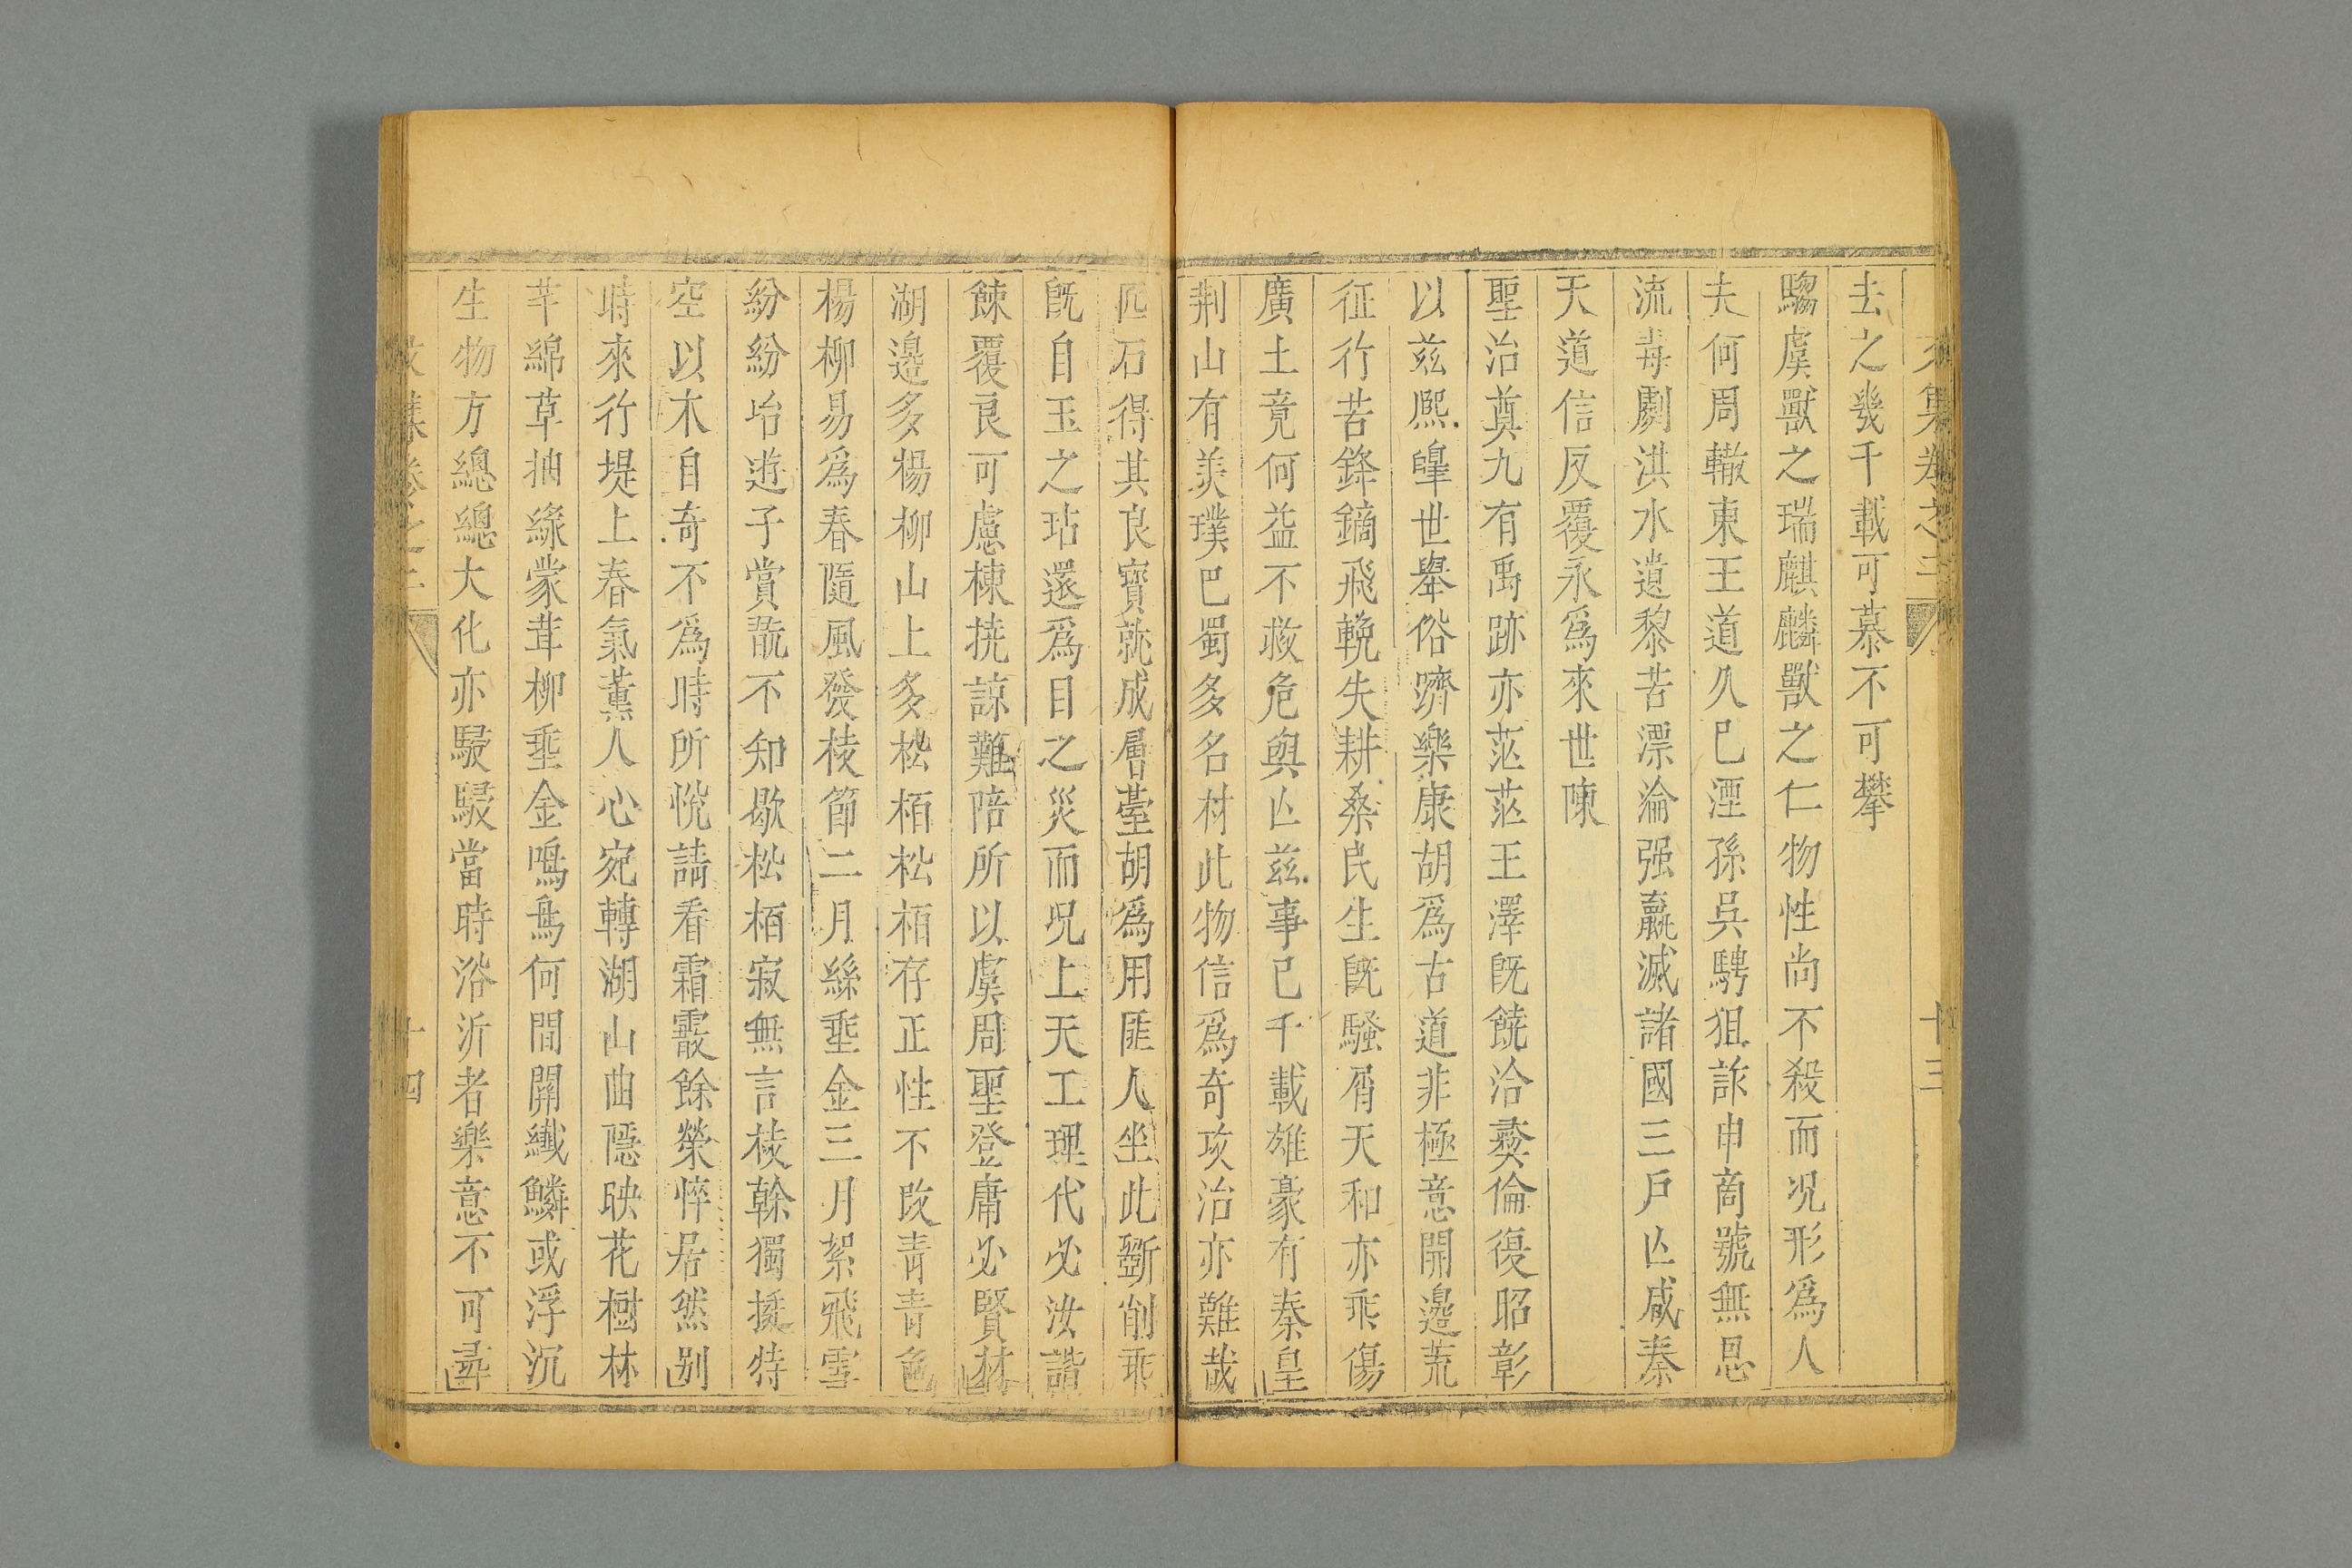 文集卷之二 十三
去之幾千載可慕不可攀
騶虞獸之瑞麒麟獸之仁物性尚不殺而况形爲人
夫何周轍東王道久已湮孫吳騁狙詐申商號無恩
流毒劇洪水遺黎苦漂淪强嬴滅諸國三戶亾咸秦
天道信反覆永爲來世陳
聖治奠九有禹跡亦茫茫王澤旣饒洽彛倫復昭彰
以兹熈皡世舉俗躋樂康胡爲古道非極意開邊荒
征行苦鋒鏑飛輓失耕桑民生旣騷屑天和亦乖傷
廣土竟何益不救危與亾兹事已千載雄豪有秦皇
荆山有美璞巴蜀多名材此物信爲奇攻治亦難哉
匠石得其良寳就成層臺胡爲用匪人坐此斵削乖
旣自玉之玷還爲目之災而况上天工理代必汝諧
餗覆良可慮棟撓諒難陪所以虞周聖登庸必賢材
湖邊多楊柳山上多松栢松栢存正性不改青青色
楊柳易爲春隨風發枝節二月絲垂金三月絮飛雪
紛紛冶遊子賞翫不知歇松栢寂無言枝榦獨挺特
空以木自奇不爲時所悅請看霜霰餘榮悴居然别
時來行堤上春氣薰人心宛轉湖山曲隱映花樹林
芊綿草抽綠蒙茸柳垂金鳴鳥何間關纖鱗或浮沉
生物方總總大化亦駸駸當時浴沂者樂意不可尋
文集卷之二 十四